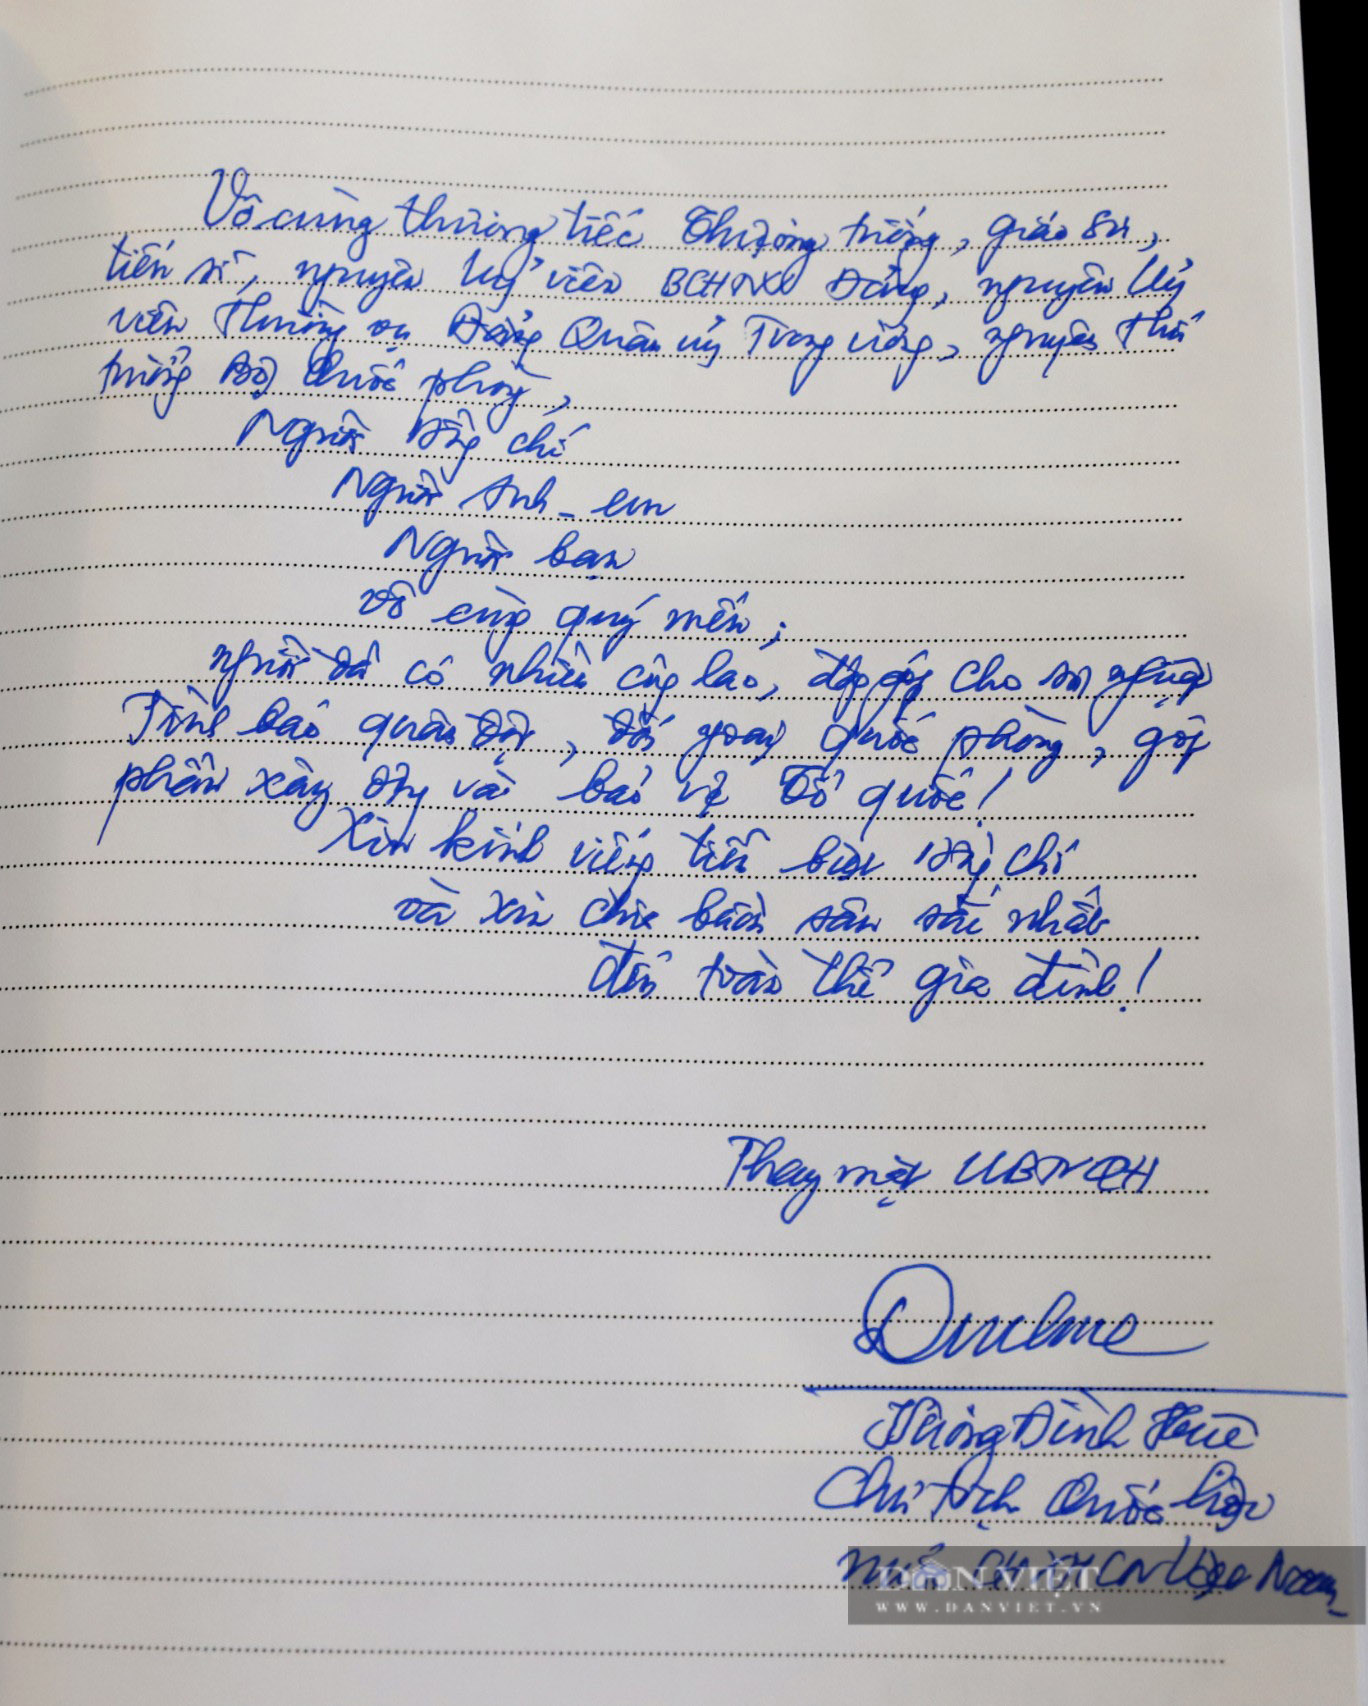 Vô cùng thương tiếc Thượng tướng, giáo sư,
tiến sĩ, nguyên Uỷ viên BCHTW Đảng, nguyên Uỷ
viên Thường vụ Đảng Quân uỷ Trung ương, nguyên Thứ
trưởng Bộ Quốc phòng,
Người đồng chí
Người Anh - em
Người bạn
vô cùng quý mến;
người đã có nhiều công lao, đóng góp cho sự nghiệp
Tình báo quân đội, đối ngoại quốc phòng, góp
phần xây dựng và bảo vệ Tổ quốc!
Xin kính viếng tiễn biệt đồng chí
và xin chia buồn sâu sắc nhất
đến toàn thể gia đình!
Thay mặt UBTVQH
Vương Đình Huệ
Chủ tịch Quốc hội
nước CHXHCN Việt Nam
DÂN VIỆT
WWW.DANVIET.VN